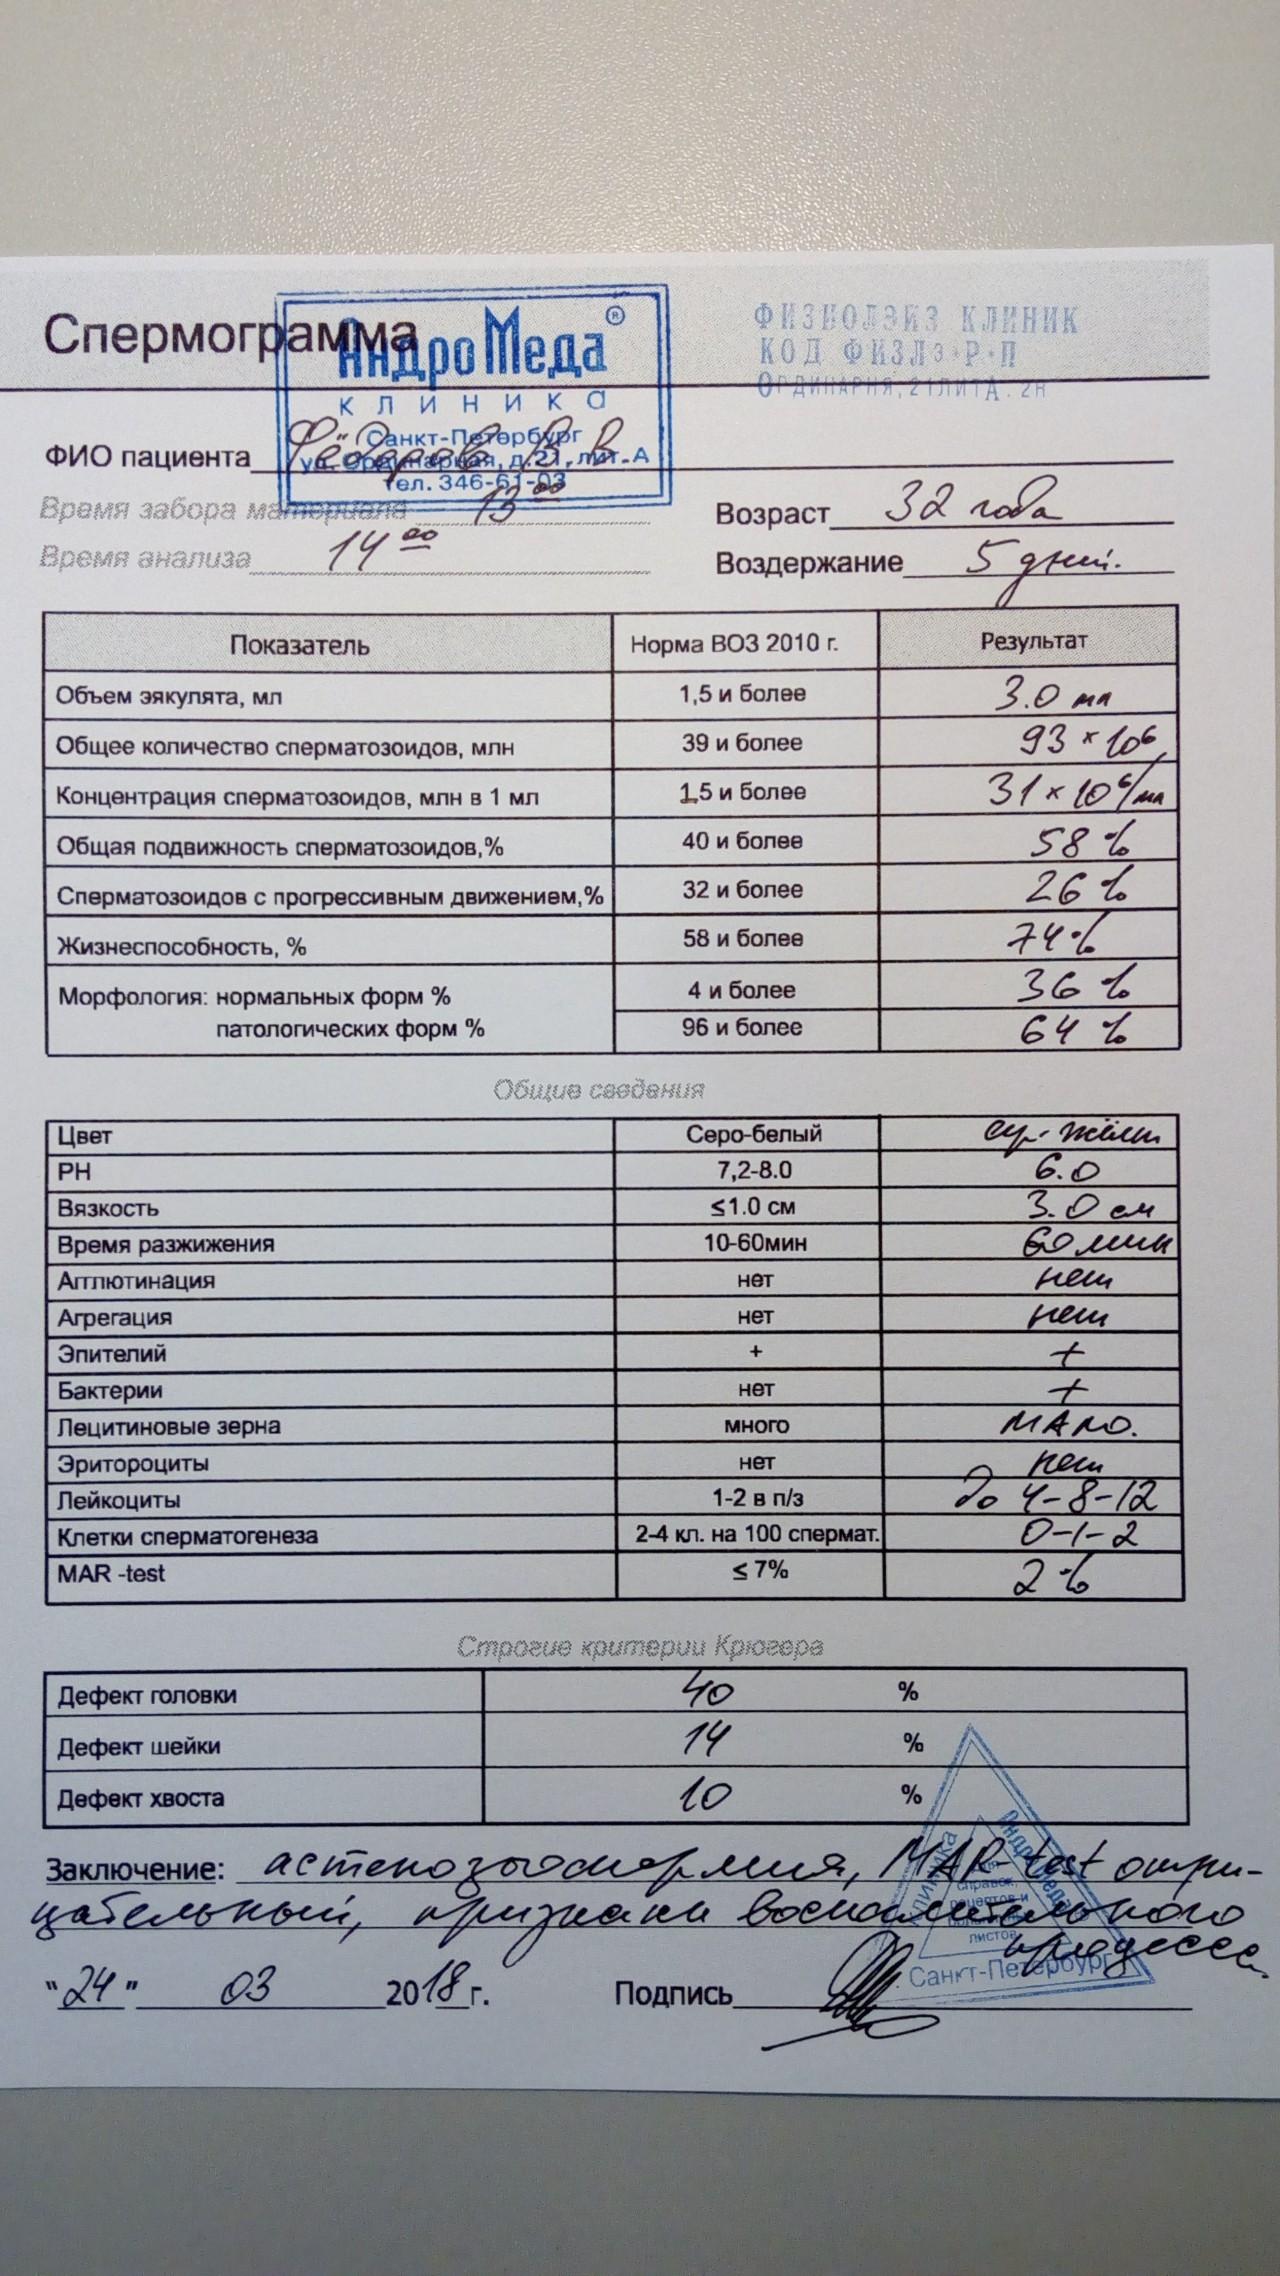 Спермограмма
АндроМеда®
КЛИНИКА
Санкт-Петербург
ул. Ординарная, д.21, лит. А
тел. 346-61-03
ФИЗИОЛЭЙЗ КЛИНИК
КОД ФИЗЛЭ·Р·П
ОРДИНАРНЯ, 21ЛИТА. 2Н
ФИО пациента Фёдоров В. В.
Время забора материала 13 00
Возраст 32 года
Время анализа 14 00
Воздержание 5 дней.
Показатель Норма ВОЗ 2010 г. Результат
Объем эякулята, мл 1,5 и более 3.0 мл
Общее количество сперматозоидов, млн 39 и более 93 × 10⁶
Концентрация сперматозоидов, млн в 1 мл 15 и более 31 × 10⁶/мл
Общая подвижность сперматозоидов,% 40 и более 58 %
Сперматозоидов с прогрессивным движением,% 32 и более 26 %
Жизнеспособность, % 58 и более 74 %
Морфология: нормальных форм % 4 и более 36 %
патологических форм % 96 и более 64 %
Общие сведения
Цвет Серо-белый сер-жёлт
PH 7,2-8.0 6.0
Вязкость ≤1.0 см 3.0 см
Время разжижения 10-60мин 60 мин
Агглютинация нет нет
Агрегация нет нет
Эпителий + +
Бактерии нет +
Лецитиновые зерна много мало.
Эритороциты нет нет
Лейкоциты 1-2 в п/з до 4-8-12
Клетки сперматогенеза 2-4 кл. на 100 спермат. 0-1-2
MAR -test ≤ 7% 2 %
Строгие критерии Крюгера
Дефект головки 40 %
Дефект шейки 14 %
Дефект хвоста 10 %
Заключение: астенозооспермия, MAR test отри-
цательный, признаки воспалительного
процесса.
"24" 03 2018 г. Подпись
Клиника
АндроМеда
Для
справок,
рецептов и
больничных
листов
Санкт-Петербург